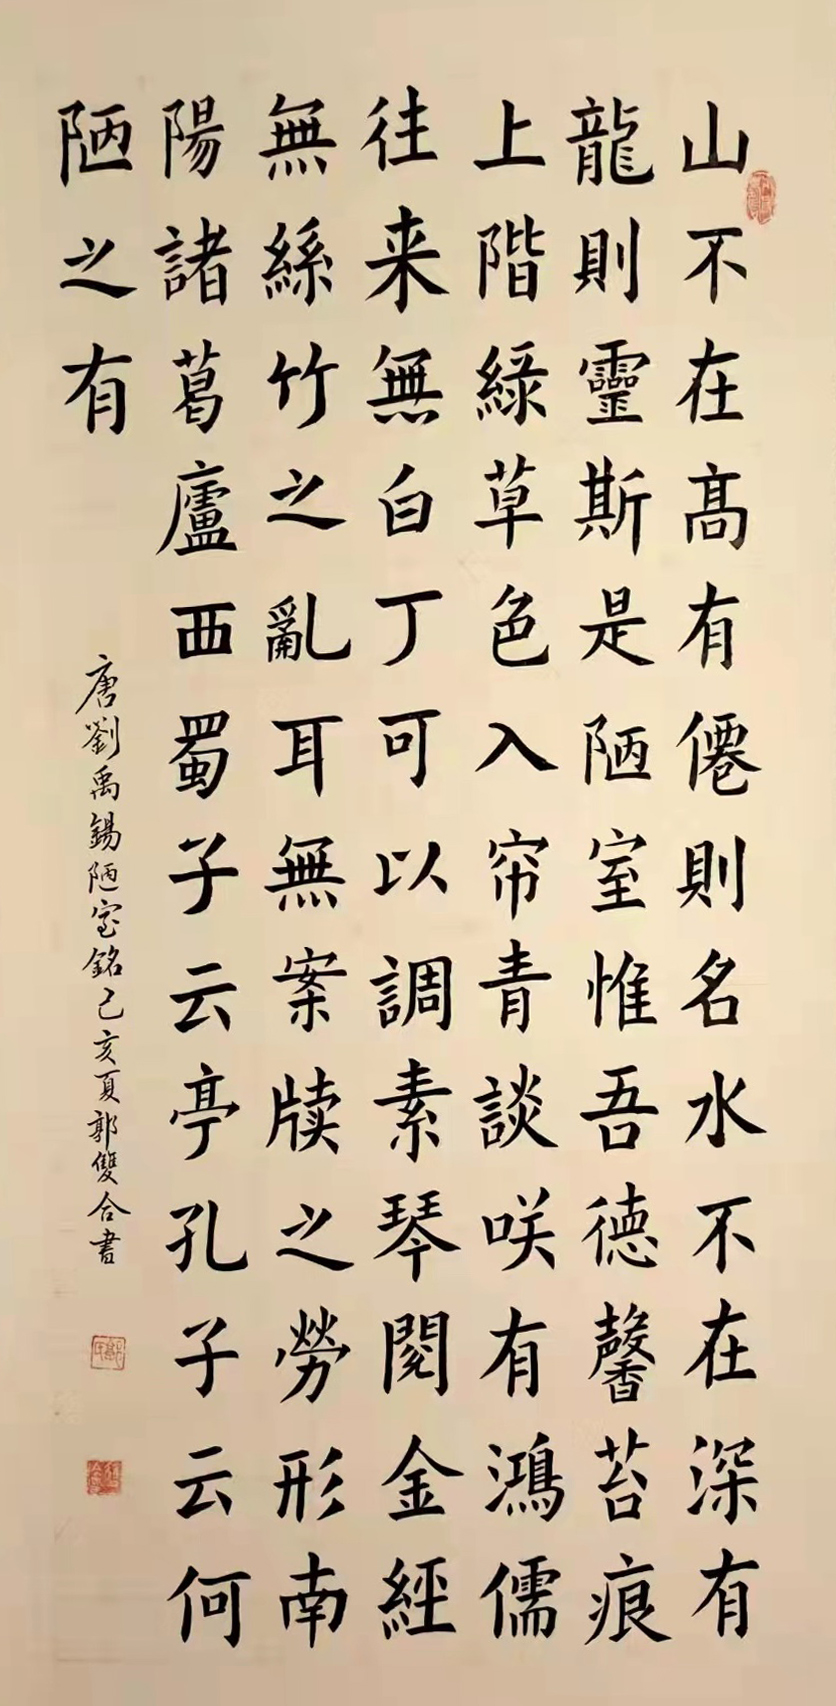 山不在髙有僊則名水不在深有
龍則靈斯是陋室惟吾德馨苔痕
上階緑草色入帘青談咲有鴻儒
往来無白丁可以調素琴閲金經
無絲竹之亂耳無案牘之勞形南
陽諸葛廬西蜀子云亭孔子云何
陋之有
唐劉禹錫陋室銘己亥夏郭雙合書